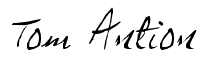 Tom Antion